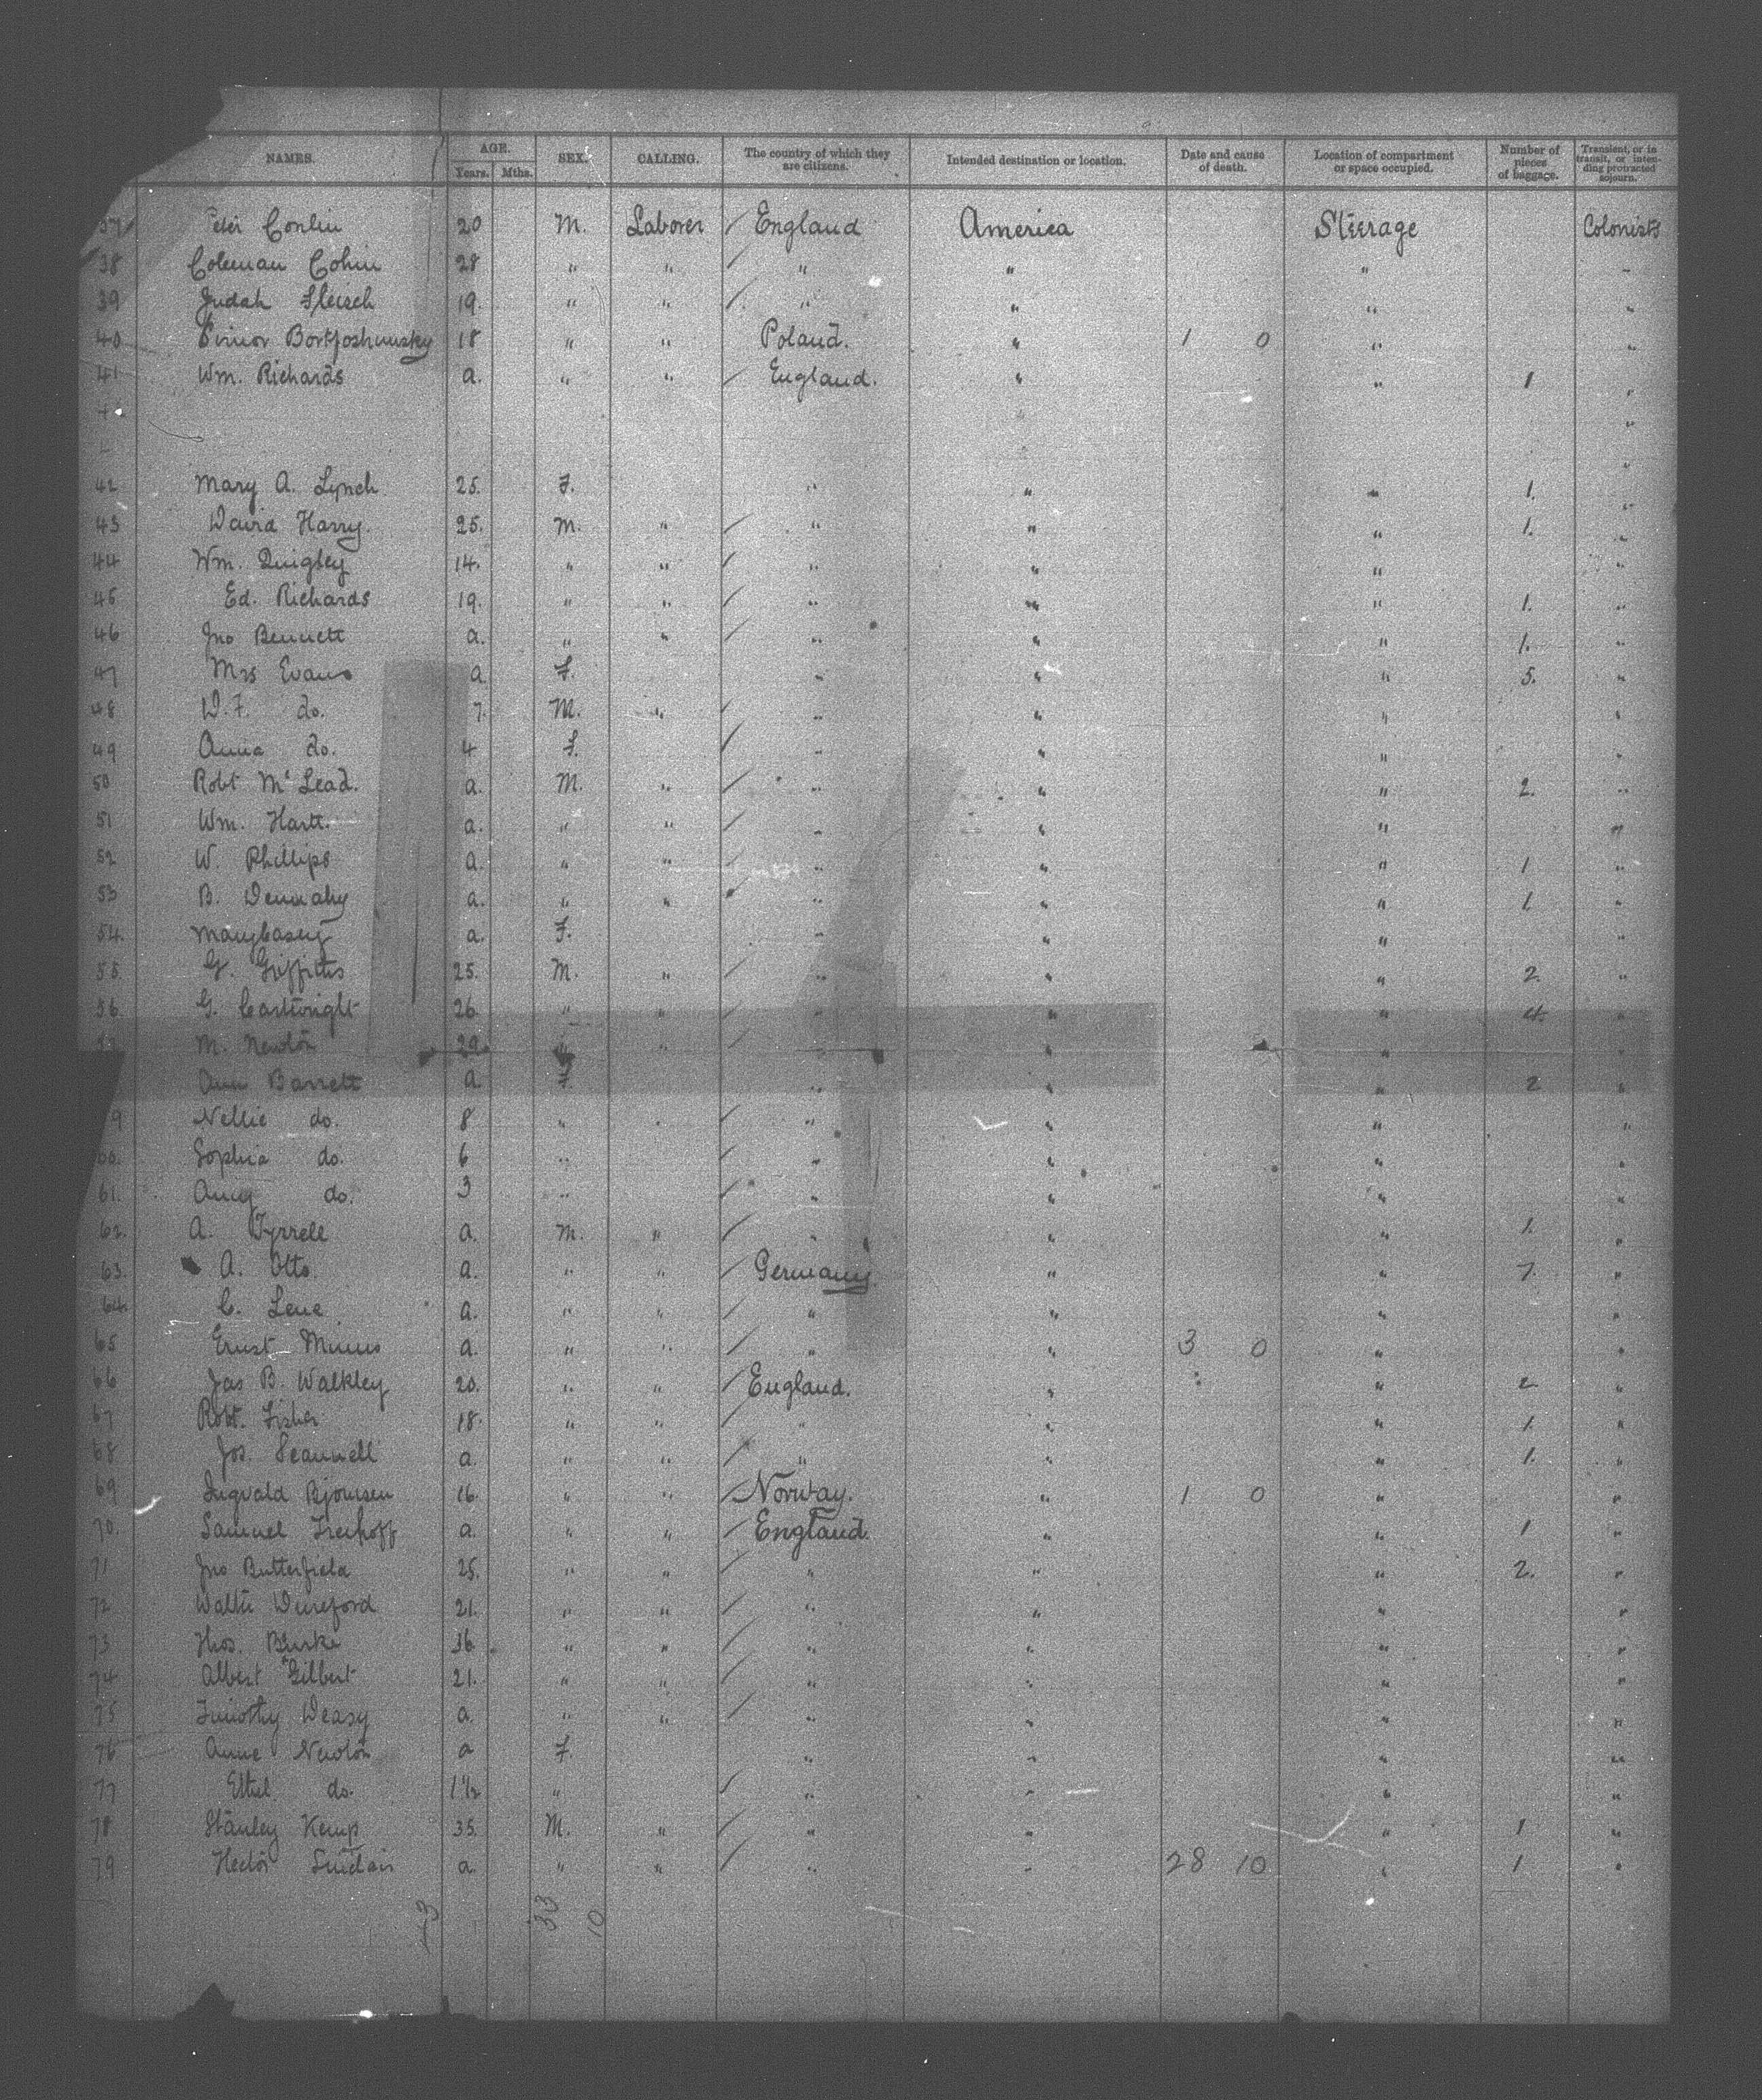 NAMES. AGE. Years. Mths. SEX. CALLING. The country of which they are citizens. Intended destination or location. Date and cause of death. Location of compartment or space occupied. Number of pieces of baggage. Transient, or in transit, or intending protracted sojourn.
37 Peter Conlin 20 M. Laborer England America Steerage Colonists
38 Coleman Cohin 28 " " " " " "
39 Judah Fleisch 19. " " " " " "
40 18 " " Poland. " 1 0 " "
41 Wm. Richards a. " " England. " " 1 "
42 Mary A. Lynch 25. F. " " " 1. "
43 David Harry. 25. M. " " " " 1. "
44 Wm. Quigley 14. " " " " " "
45 Ed. Richards 19. " " " " " 1. "
46 Jno Bennett a. " " " " " 1. "
47 Mrs Evans a F. " " " 5. "
48 W.F. do. 7. M. " " " " "
49 Anna do. 4 F. " " " "
50 Robt McLead. a. M. " " " " 2. "
51 Wm. Hart. a. " " " " " "
52 W. Phillips a. " " " " " 1 "
53 B. Dennahy a. " " " " " 1. "
54. Mary Casey a. F. " " " "
55. G. Griffiths 25. M. " " " " 2. "
56 G. Cartwright 26 " " " " " 4. "
M. Newton 29. " " " " " "
Ann Barrett a F. " " " 2 "
9 Nellie do. 8 " " " " " "
60. Sophia do. 6 " " " " "
61. Amy do. 3 " " " " "
62. A. Tyrrell a. M. " " " " 1. "
63. A. Otto. a. " " Germany. " " 7. "
64. C. Lene a. " " " " " "
65 Ernst a. " " " " 3 0 " "
66 Jas B. Walkley 20. " " England. " " 2. "
67 Robt. Fisher 18. " " " " " 1. "
68 Jos. Scannell a. " " " " " 1. "
69 Ingvald Bjornsen 16 " " Norway. " 1 0 " "
70. Samuel Freihoff a. " " England. " " 1 "
71 Jno Butterfield 25. " " " " " 2. "
72 Walter Dureford 21. " " " " " "
73 Thos. Burke 36 " " " " " "
74 Albert Gilbert 21. " " " " " "
75 Timothy Deasy a. " " " " " "
76 Anne Newton a F. " " " "
77 Ethel do. 1½ " " " " "
78 Stanley Kemp 35. M. " " " " 1 "
79 Hector Sinclair a. " " " " 28 10 " 1 "
43 33 10